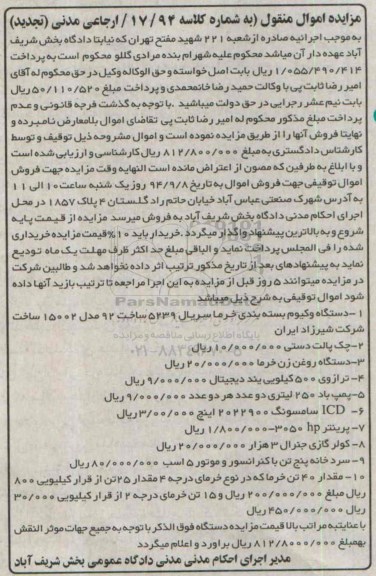 مزایده اموال منقول (به شماره کلاسه ۹۴ / ۱۷ / ارجاعی مدنی (تجدید)
به موجب اجرائیه صادره از شعبه ۲۲۱ شهید مفتح تهران که نیابتا دادگاه بخش شریف
آباد عهده دار آن میباشد محکوم علیه شهرام بنده مرادی گللو محکوم است به پرداخت
۱/۰۵۵/۴۹۰/۴۱۴ ریال بابت اصل خواسته و حق الوکاله وکیل در حق محکوم له آقای
امیر رضا ثابت پی با وکالت حمید رضا خانمحمدی و پرداخت مبلغ ۵۰/۱۱۰/۵۲۰ ریال
بابت نیم عشر اجرایی در حق دولت میباشید . با توجه به گذشت فرجه قانونی و عدم
پرداخت مبلغ مذکور محکوم له امیر رضا ثابت پی تقاضای اموال بلامعارض نامبرده و
نهایتا فروش آنها را از طریق مزایده نموده است و اموال مشروحه ذیل توقیف و توسط
کارشناس دادگستری به مبلغ ۸۱۲/۸۰۰/۰۰۰ ریال کارشناسی و ارزیابی شده است
و با ابلاغ به طرفین که مصون از اعتراض مانده است النهایه وقت مزایده جهت فروش
اموال توقیفی جهت فروش اموال به تاریخ ۹۴/۹/۸ روز یک شنبه ساعت ۱۰ الی ۱۱
به آدرس شهرک صنعتی عباس آباد خیابان حاتم راد گلستان ۴ پلاک ۱۸۵۷ در محل
اجرای احکام مدنی دادگاه بخش شریف آباد به فروش میرسد مزایده از قیمت پایه
شروع و به بالاترین پیشنهاد واگذار میگردد. خریدار باید ۱۰٪ قیمت مزایده خریداری
شده را فی المجلس پرداخت نماید و الباقی مبلغ حداکثر ظرف مهلت یک ماه تودیع
نماید به پیشنهادهای بعد از تاریخ مذکور ترتیب اثر داده نخواهد شد و طالبین شرکت
در مزایده میتوانند ۵ روز قبل از مزایده به این اجرا مراجعه تا ترتیب بازدید آنها داده
شود اموال توقیفی به شرح ذیل میباشد
۱- دستگاه وکیوم بسته بندی خرما سریال ۵۲۳۹ ساخت ۹۲ مدل ۱۵۰۰۲ ساخت
شرکت شیرزاد ایران
۲- جک پالت دستی ۱۰/۸۰۰/۰۰۰ ریال
۳- دستگاه روغن زن خرما ۲۰/۰۰۰/۰۰۰ ریال
۴- ترازوی ۵۰۰ کیلویی پند دیجیتال ۹/۰۰۰/۰۰۰ ریال
۵- پمپ باد ۲۵۰ لیتری دو عدد هر دو عدد ۹/۰۰۰/۰۰۰ ریال
۶- lCD سامسونگ ۲۰۲۲۹۰۰ اینچ ۳/۰۰۰/۰۰۰ ریال
۷- پرینتر hp ۳۰۵۰-۱/۸۰۰/۰۰۰ ریال
۸- کولر گازی جنرال ۳ هزار ۲۰/۰۰۰/۰۰۰ ریال
۹- سردخانه پنج تن با کنرانسور و موتور ۵ اسب ۸۰/۰۰۰/۰۰۰ ریال
۱۰- مقدار ۴۰ تن خرما که در نوع خرمای درجه ۴ مقدار ۲۵ تن از قرار کیلویی ۸۰۰
ریال مبلغ ۲۰۰/۰۰۰/۰۰۰ ریال و ۱۵ تن خرمای درجه ۲ از قرار کیلویی ۳۰/۰۰۰
ریال ۴۵۰/۰۰۰/۰۰۰ ریال
با عنایت به مراتب بالا قیمت مزایده دستگاه فوق الذکر با توجه به جمیع جهات موثر النقش
بهمبلغ ۸۱۲/۸۰۰/۰۰۰ ریال برآورد و اعلام میگردد
مدیر اجرای احکام مدنی مدنی دادگاه عمومی بخش شریف آباد